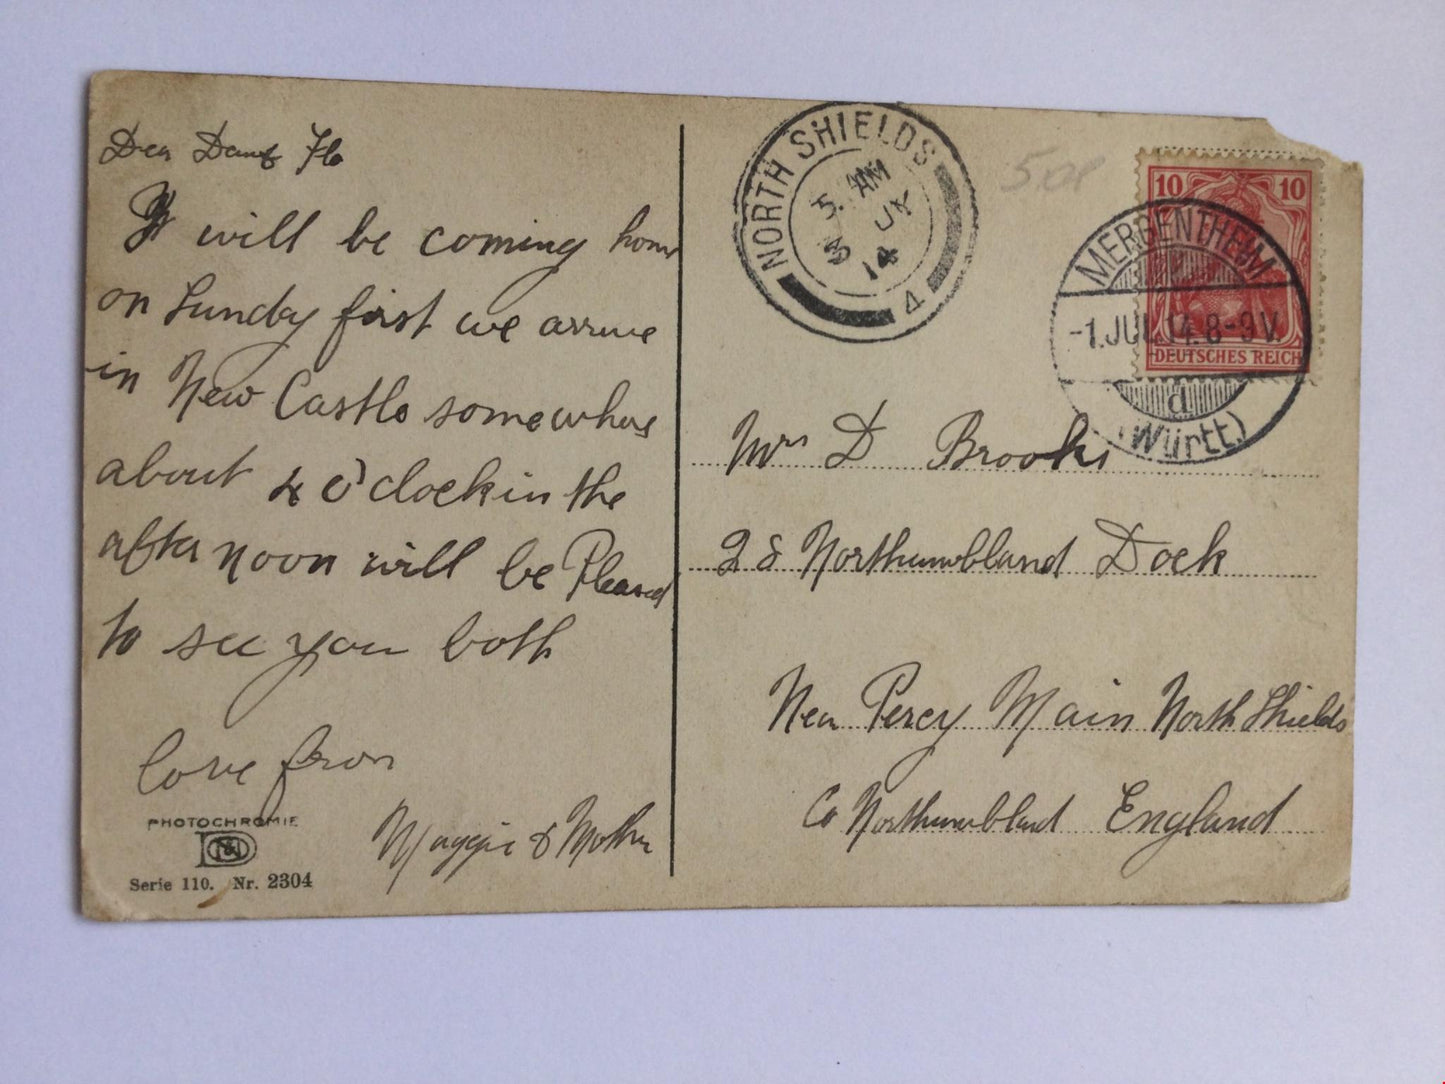 Dear
I will be coming home
on Sunday first we arrive
in New Castle somewhere
about 4 o'clock in the
afternoon will be Pleased
to see you both
love from
Maggie & Mother
PHOTOCHROMIE
Serie 110. Nr. 2304
NORTH SHIELDS
AM
JY
14
4
5.00
10 10
DEUTSCHES REICH
MERGENTHEIM
-1.JUL.14.8-9V.
d
(Württ.)
Mrs D Brooks
28 Northumbland Dock
Near Percy Main North Shields
Co Northumbland England